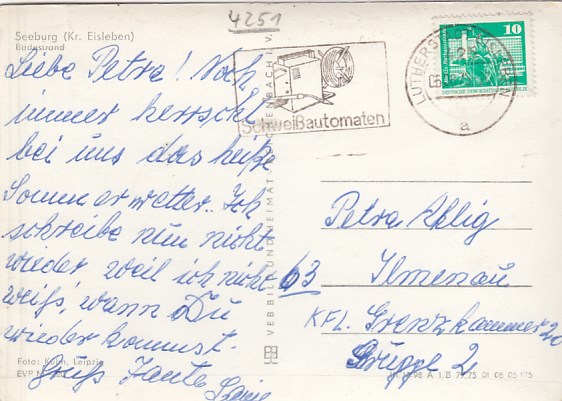 4251
Seeburg (Kr. Eisleben)
Badestrand
Liebe Petra! Noch
immer herrscht
bei uns das heiße
Sommerwetter. Ich
schreibe nun nicht
wieder, weil ich nicht
weiß, wann Du
wieder kommst.
Gruß Tante
Foto: Kühn, Leipzig
EVP
VEB BILD UND HEIMAT
Schweißautomaten
LUTHERSTADT EISLEBEN
a
10
Petra Uhlig
63 Ilmenau
KFL.
Gruppe 2
A 1. B
01 06 05 175